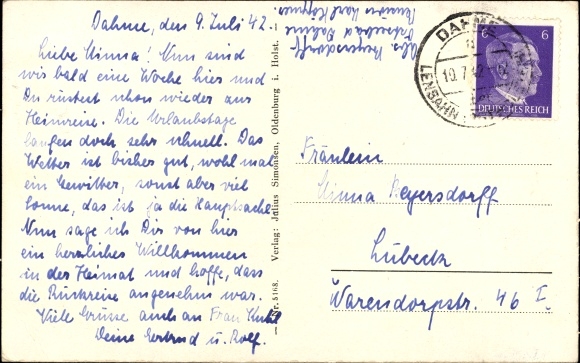 Dahme, den 9. Juli 42.
Liebe Anna! Nun sind
wir bald eine Woche hier und
Du rüstest schon wieder zur
Heimreise. Die Urlaubstage
laufen doch sehr schnell. Das
Wetter ist bisher gut, wohl mal
ein Gewitter, sonst aber viel
Sonne, das ist ja die Hauptsache.
Nun sage ich Dir von hier
ein herzliches Willkommen
in der Heimat und hoffe, dass
die Rückreise angenehm war.
Viele Grüsse auch an Frau
Deine Gertrud u. Rolf.
Nr. 5168. Verlag: Julius Simonsen, Oldenburg i. Holst.
Abs. Beyersdorff
Ostseebad Dahme
Pension Karl
DAHME
10.7.42
LENSAHN
6 6
DEUTSCHES REICH
Fräulein
Anna Beyersdorff
Lübeck
Warendorpstr. 46 I.